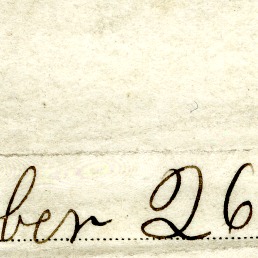 ber 26